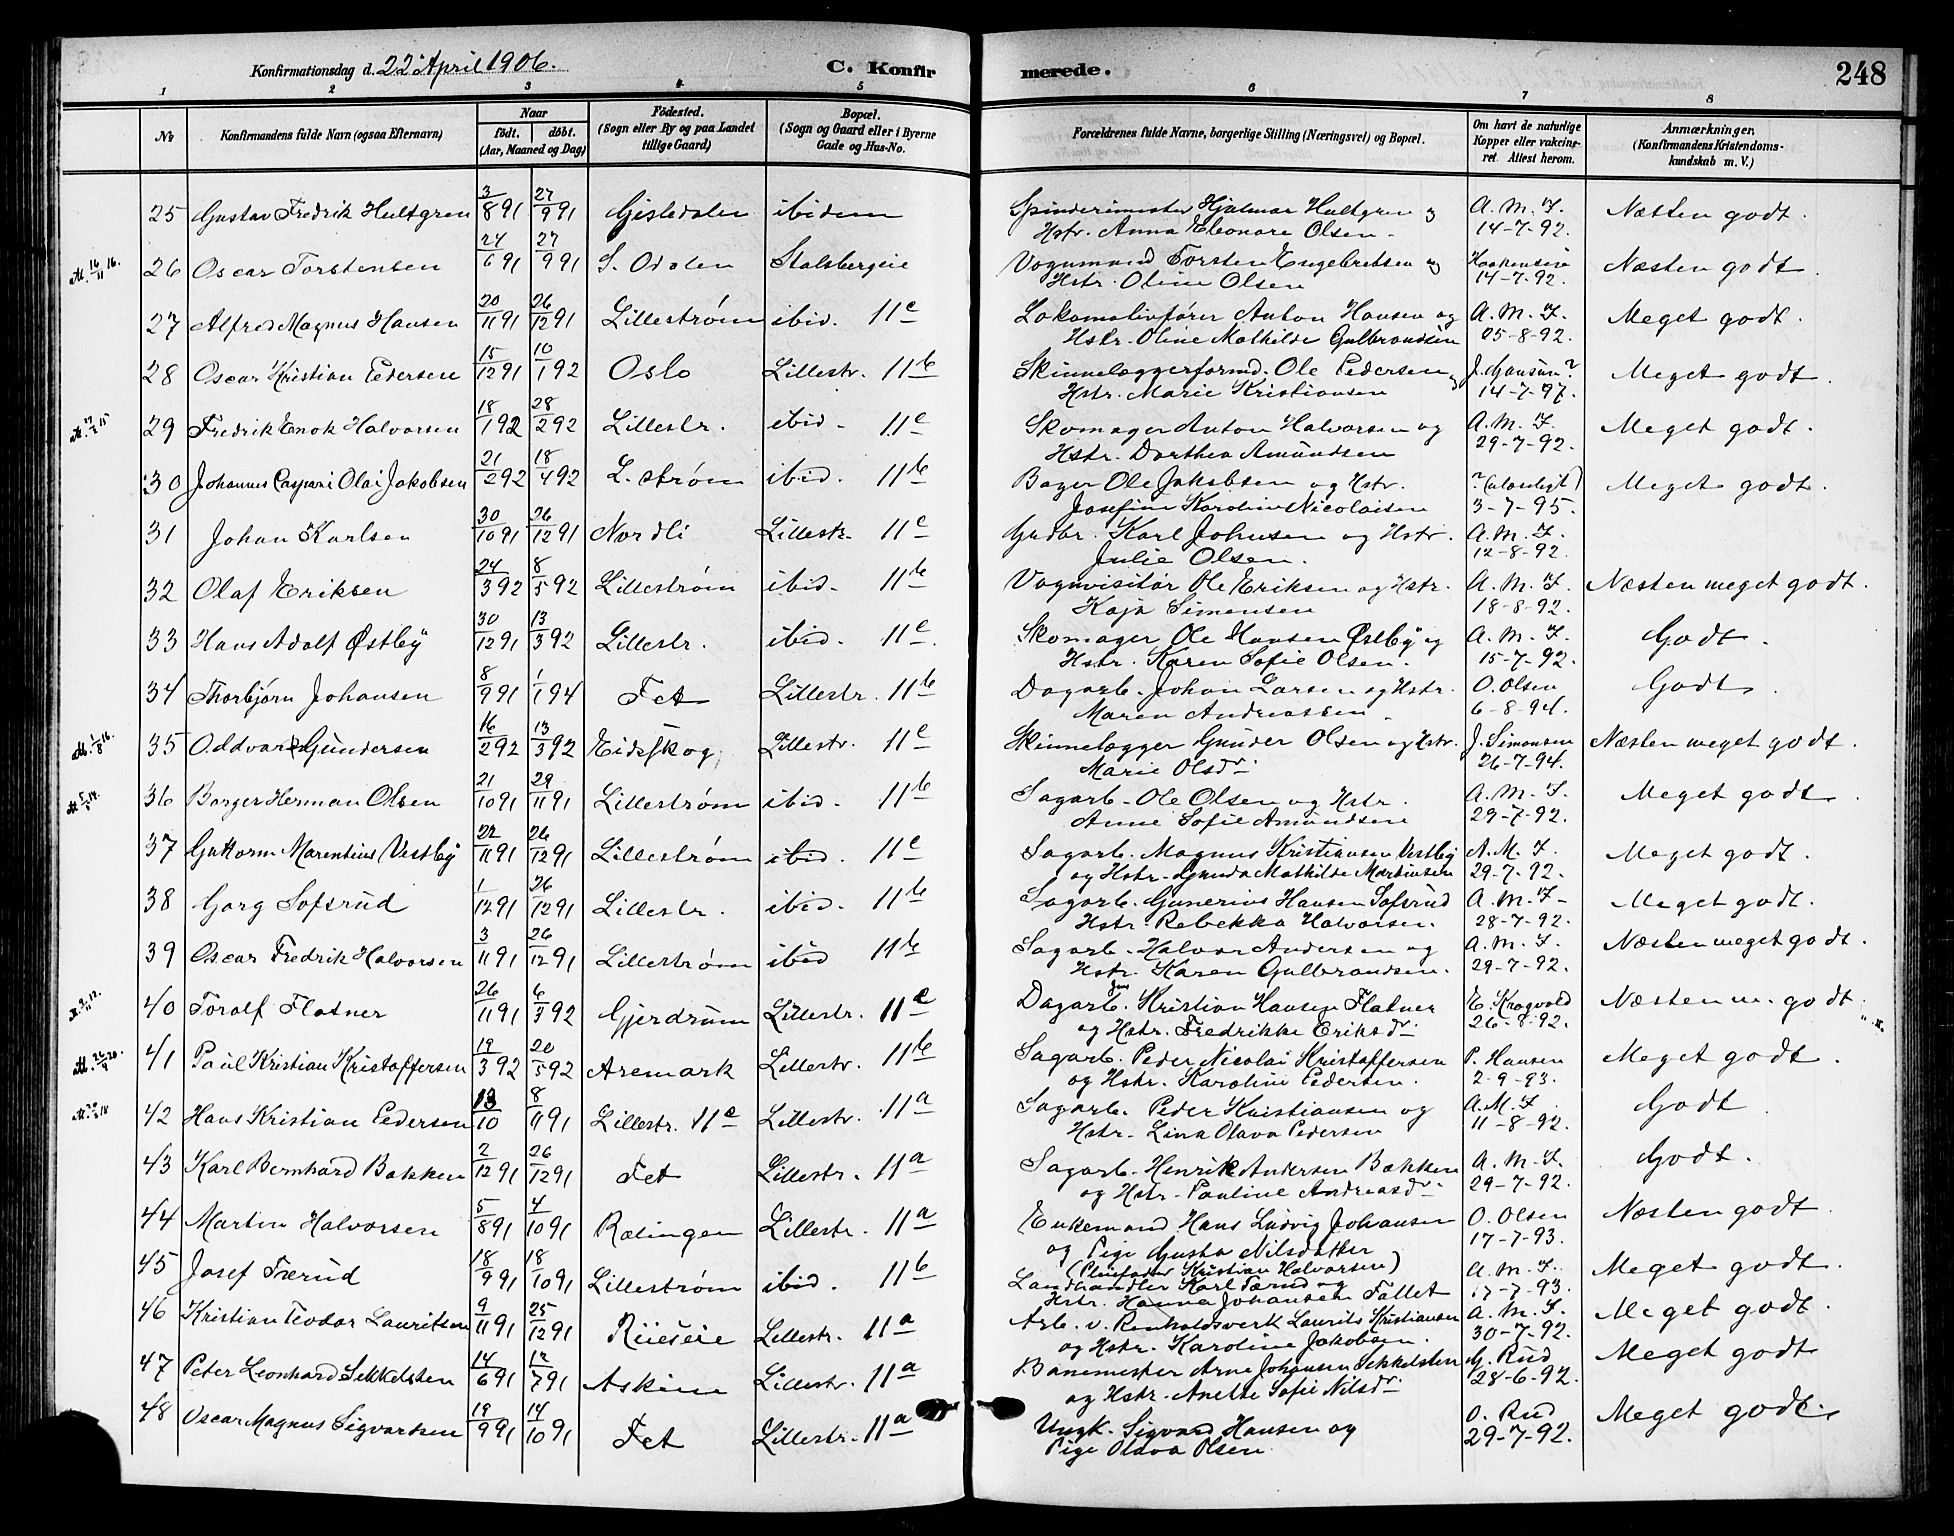 Konfirmationsdag d. 22 April 1906. C. Konfir merede. 248
1 2 3 4 5 6 7 8
No Konfirmandens fulde Navn (ogsaa Efternavn) Naar født. døbt. (Aar, Maaned og Dag) Fødested. (Sogn eller By og paa Landet tillige Gaard) Bopæl. (Sogn og Gaard eller i Byerne Gade og Hus-No. Forældrenes fulde Navne, borgerlige Stilling (Næringsvei) og Bopæl. Om havt de naturlige Kopper eller vakcineret. Attest herom. Anmærkninger. (Konfirmandens Kristendomskundskab m. V.)
25 Gustav Fredrik Hultgren 3/8 91 27/9 91 ibidem Spinderimester Hjalmar Hultgren og A. M. F. Næsten godt.
Hstr. Anna Eleonore Olsen. 14-7-92.
26 Oscar Torstensen 24/6 91 27/9 91 S. Odalen Stalsbergeie Vognmand Torsten Engebretsen og Næsten godt.
Hstr. Oline Olsen 14-7-92.
27 Alfred Magnus Hansen 20/11 91 26/12 91 Lillestrøm ibid. 11c Lokomotivfører Anton Hansen og A. M. F. Meget godt.
Hstr. Oline Mathilde Gulbrandsen 25-8-92.
28 Oscar Kristian Pedersen 15/12 91 10/1 92 Oslo Lillestr. 11b Skinnelæggerformd. Ole Pedersen og J. Hansen? Meget godt.
Hstr. Marie Kristiansen 14-7-97.
29 Fredrik Enok Halvorsen 18/1 92 28/2 92 Lillestr. ibid. 11c Skomager Anton Halvorsen og A. M. F. Meget godt.
Hstr. Dorthea Amundsen 29-7-92.
30 Johannes Caspari Olai Jakobsen 21/2 92 18/4 92 L. strøm ibid. 11b Bager Ole Jakobsen og Hstr. ? (ulæseligt) Meget godt.
Josefine Karoline Nicolaisen 3-7-95.
31 Johan Karlsen 30/10 91 26/12 91 Nordli Lillestr. 11c Gudbr. Karl Johnsen og Hstr. A. M. F.
Julie Olsen. 12-8-92.
32 Olaf Eriksen 24/3 92 8/5 92 Lillestrøm ibid. 11b Vognvisitør Ole Eriksen og Hstr. A. M. F. Næsten meget godt.
Kaja Simensen 18-8-92.
33 Hans Adolf Østby 30/12 91 13/3 92 Lillestr. ibid. 11c Skomager Ole Hansen Østby og A. M. F. Godt.
Hstr. Karen Sofie Olsen. 15-7-92.
34 Thorbjørn Johansen 8/9 91 1/1 94 Fet Lillestr. 11b Dagarb. Johan Larsen og Hstr. O. Olsen Godt.
Maren Andreassen. 6-8-94.
35 Oddvar Gundersen 16/2 92 13/3 92 Eidskog Lillestr. 11c Skinnelægger Gunder Olsen og Hstr. J. Simonsen Næsten meget godt.
Marie Olsdr. 26-7-94.
36 Borger Herman Olsen 21/10 91 29/11 91 Lillestrøm ibid. 11b Sagarb. Ole Olsen og Hstr. A. M. F. Meget godt.
Anne Sofie Amundsen 29-7-92.
37 Guttorm Marentius Vestby 22/11 91 26/12 91 Lillestrøm ibid. 11c Sagarb. Magnus Kristiansen Vestby A. M. F. Meget godt.
og Hstr. Gunda Mathilde Martinsen 29-7-92.
38 Gorg Sofsrud 1/12 91 26/12 91 Lillestr. ibid. 11b Sagarb. Gunerius Hansen Sofsrud A. M. F. Meget godt.
Hstr. Rebekka Halvorsen. 28-7-92.
39 Oscar Fredrik Halvorsen 3/11 91 26/12 91 Lillestrøm ibid 11b Sagarb. Halvor Andersen og A. M. F. Næsten meget godt.
Hstr. Karen Gulbrandsen. 29-7-92.
40 Toralf Flatner 26/11 91 6/3 92 Gjerdrum Lillestr. 11c Dagarb. Kristian Hansen Flatner E. Kragvold Næsten m. godt.
og Hstr. Fredrikke Eriksdr. 26-8-92.
41 Paul Kristian Kristoffersen 19/3 92 20/5 92 Aremark Lillestr. 11b Sagarb. Peder Nicolai Kristoffersen P. Hansen Meget godt.
og Hstr. Karoline Pedersen. 2-9-93.
42 Hans Kristian Pedersen 13/10 8/11 91 Lillestr. 11c Lillestr. 11a Sagarb. Peder Kristiansen og A. M. F. Godt.
Hstr. Lina Olava Pedersen 11-8-92.
43 Karl Bernhard Bakken 2/12 91 26/12 91 Fet Lillestr. 11a Sagarb. Henrik Andersen Bakken A. M. F. Godt.
og Hstr. Pauline Andreasdr. 29-7-92.
44 Martin Halvorsen 5/8 91 4/10 91 Rælingen Lillestr. 11a Enkemand Hans Ludvig Johansen O. Olsen Næsten godt.
og Pige Gusta Nilsdatter 17-7-93.
(Pleiefader Kristian Halvorsen)
45 Josef Tærud 18/9 91 18/10 91 Lillestrøm ibid. 11b Landhandler Karl Tærud og A. M. F. Meget godt.
Hstr. Hanna Johansen Fallet 17-7-93.
46 Kristian Teodor Lauritsen 9/11 91 25/12 91 Lillestr. 11a Arb. v. Renholdsverk Laurits Kristiansen A. M. F. Meget godt.
og Hstr. Karoline Jakobsen. 30-7-92.
47 Peter Leonhard Sekkelsten 14/6 91 12/7 91 Askim Lillestr. 11a Banemester Arne Johansen Sekkelsten G. Rud Meget godt
og Hstr. Anette Sofie Nilsdr. 28-6-92.
48 Oscar Magnus Sigvartsen 19/9 91 14/10 91 Fet Lillestr. 11a Ungk. Sigvard Hansen og O. Rud Meget godt.
Pige Olava Olsen 29-7-92.